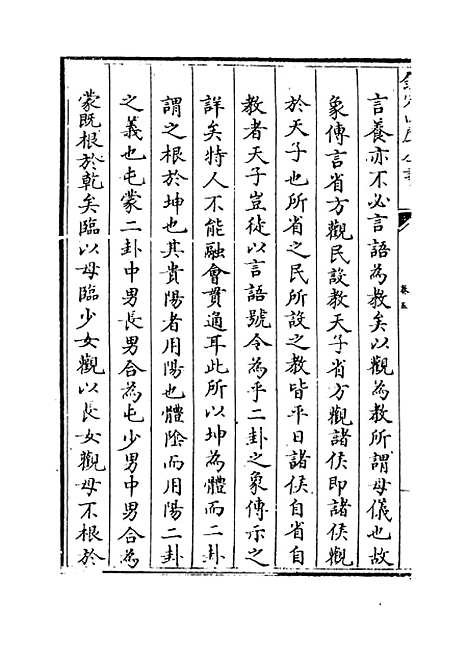 欽定四庫全書
卷五
言養亦不必言語為教矣以觀為教所謂母儀也故
象傳言省方觀民設教天子省方觀諸侯即諸侯觀
於天子也所省之民所設之教皆平日諸侯自省自
教者天子豈徒以言語號令為乎二卦之象傳示之
詳矣特人不能融會貫通耳此所以坤為體而二卦
謂之根於坤也其貴陽者用陽也體陰而用陽二卦
之義也屯蒙二卦中男長男合為屯少男中男合為
蒙既根於乾矣臨以母臨少女觀以長女觀母不根於